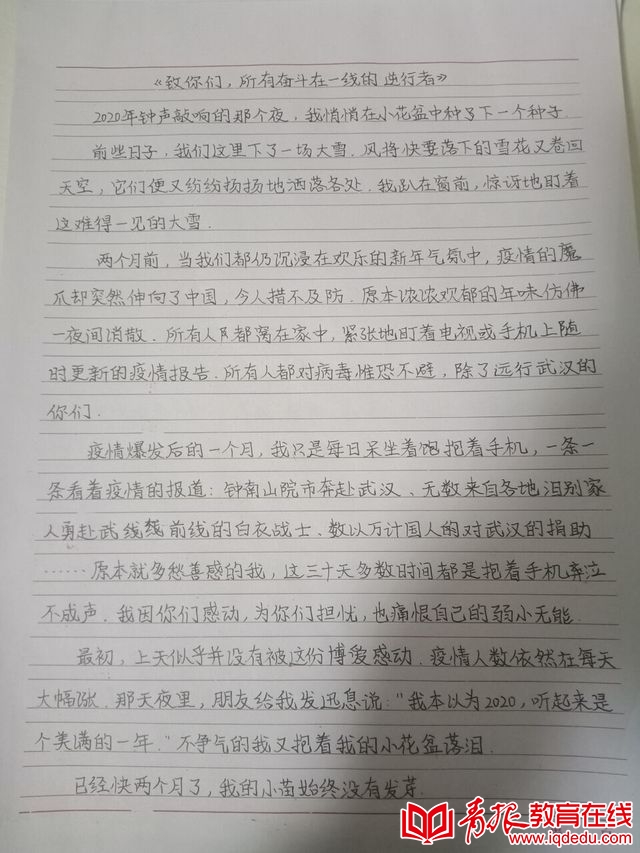 《致你们，所有奋斗在一线的逆行者》
2020年钟声敲响的那个夜，我悄悄在小花盆中种了下一个种子.
前些日子，我们这里下了一场大雪.风将快要落下的雪花又卷回
天空，它们便又纷纷扬扬地洒落各处.我趴在窗前，惊讶地盯着
这难得一见的大雪.
两个月前，当我们都仍沉浸在欢乐的新年气氛中，疫情的魔
爪却突然伸向了中国，令人措不及防.原本浓浓欢郁的年味仿佛
一夜间消散.所有人都窝在家中，紧张地盯着电视或手机上随
时更新的疫情报告.所有人都对病毒惟恐不避，除了远行武汉的
你们.
疫情爆发后的一个月，我只是每日呆坐着抱着手机，一条一
条看着疫情的报道：钟南山院市奔赴武汉、无数来自各地泪别家
人勇赴武前线的白衣战士、数以万计国人的对武汉的捐助
……原本就多愁善感的我，这三十天多数时间都是抱着手机弃泣
不成声.我因你们感动，为你们担忧，也痛恨自己的弱小无能.
最初，上天似乎并没有被这份博爱感动.疫情人数依然在每天
大幅涨.那天夜里，朋友给我发迅息说："我本以为2020，听起来是
个美满的一年."不争气的我又抱着我的小花盆落泪.
已经快两个月了，我的小苗始终没有发芽.
青报教育在线
www.iqdedu.com